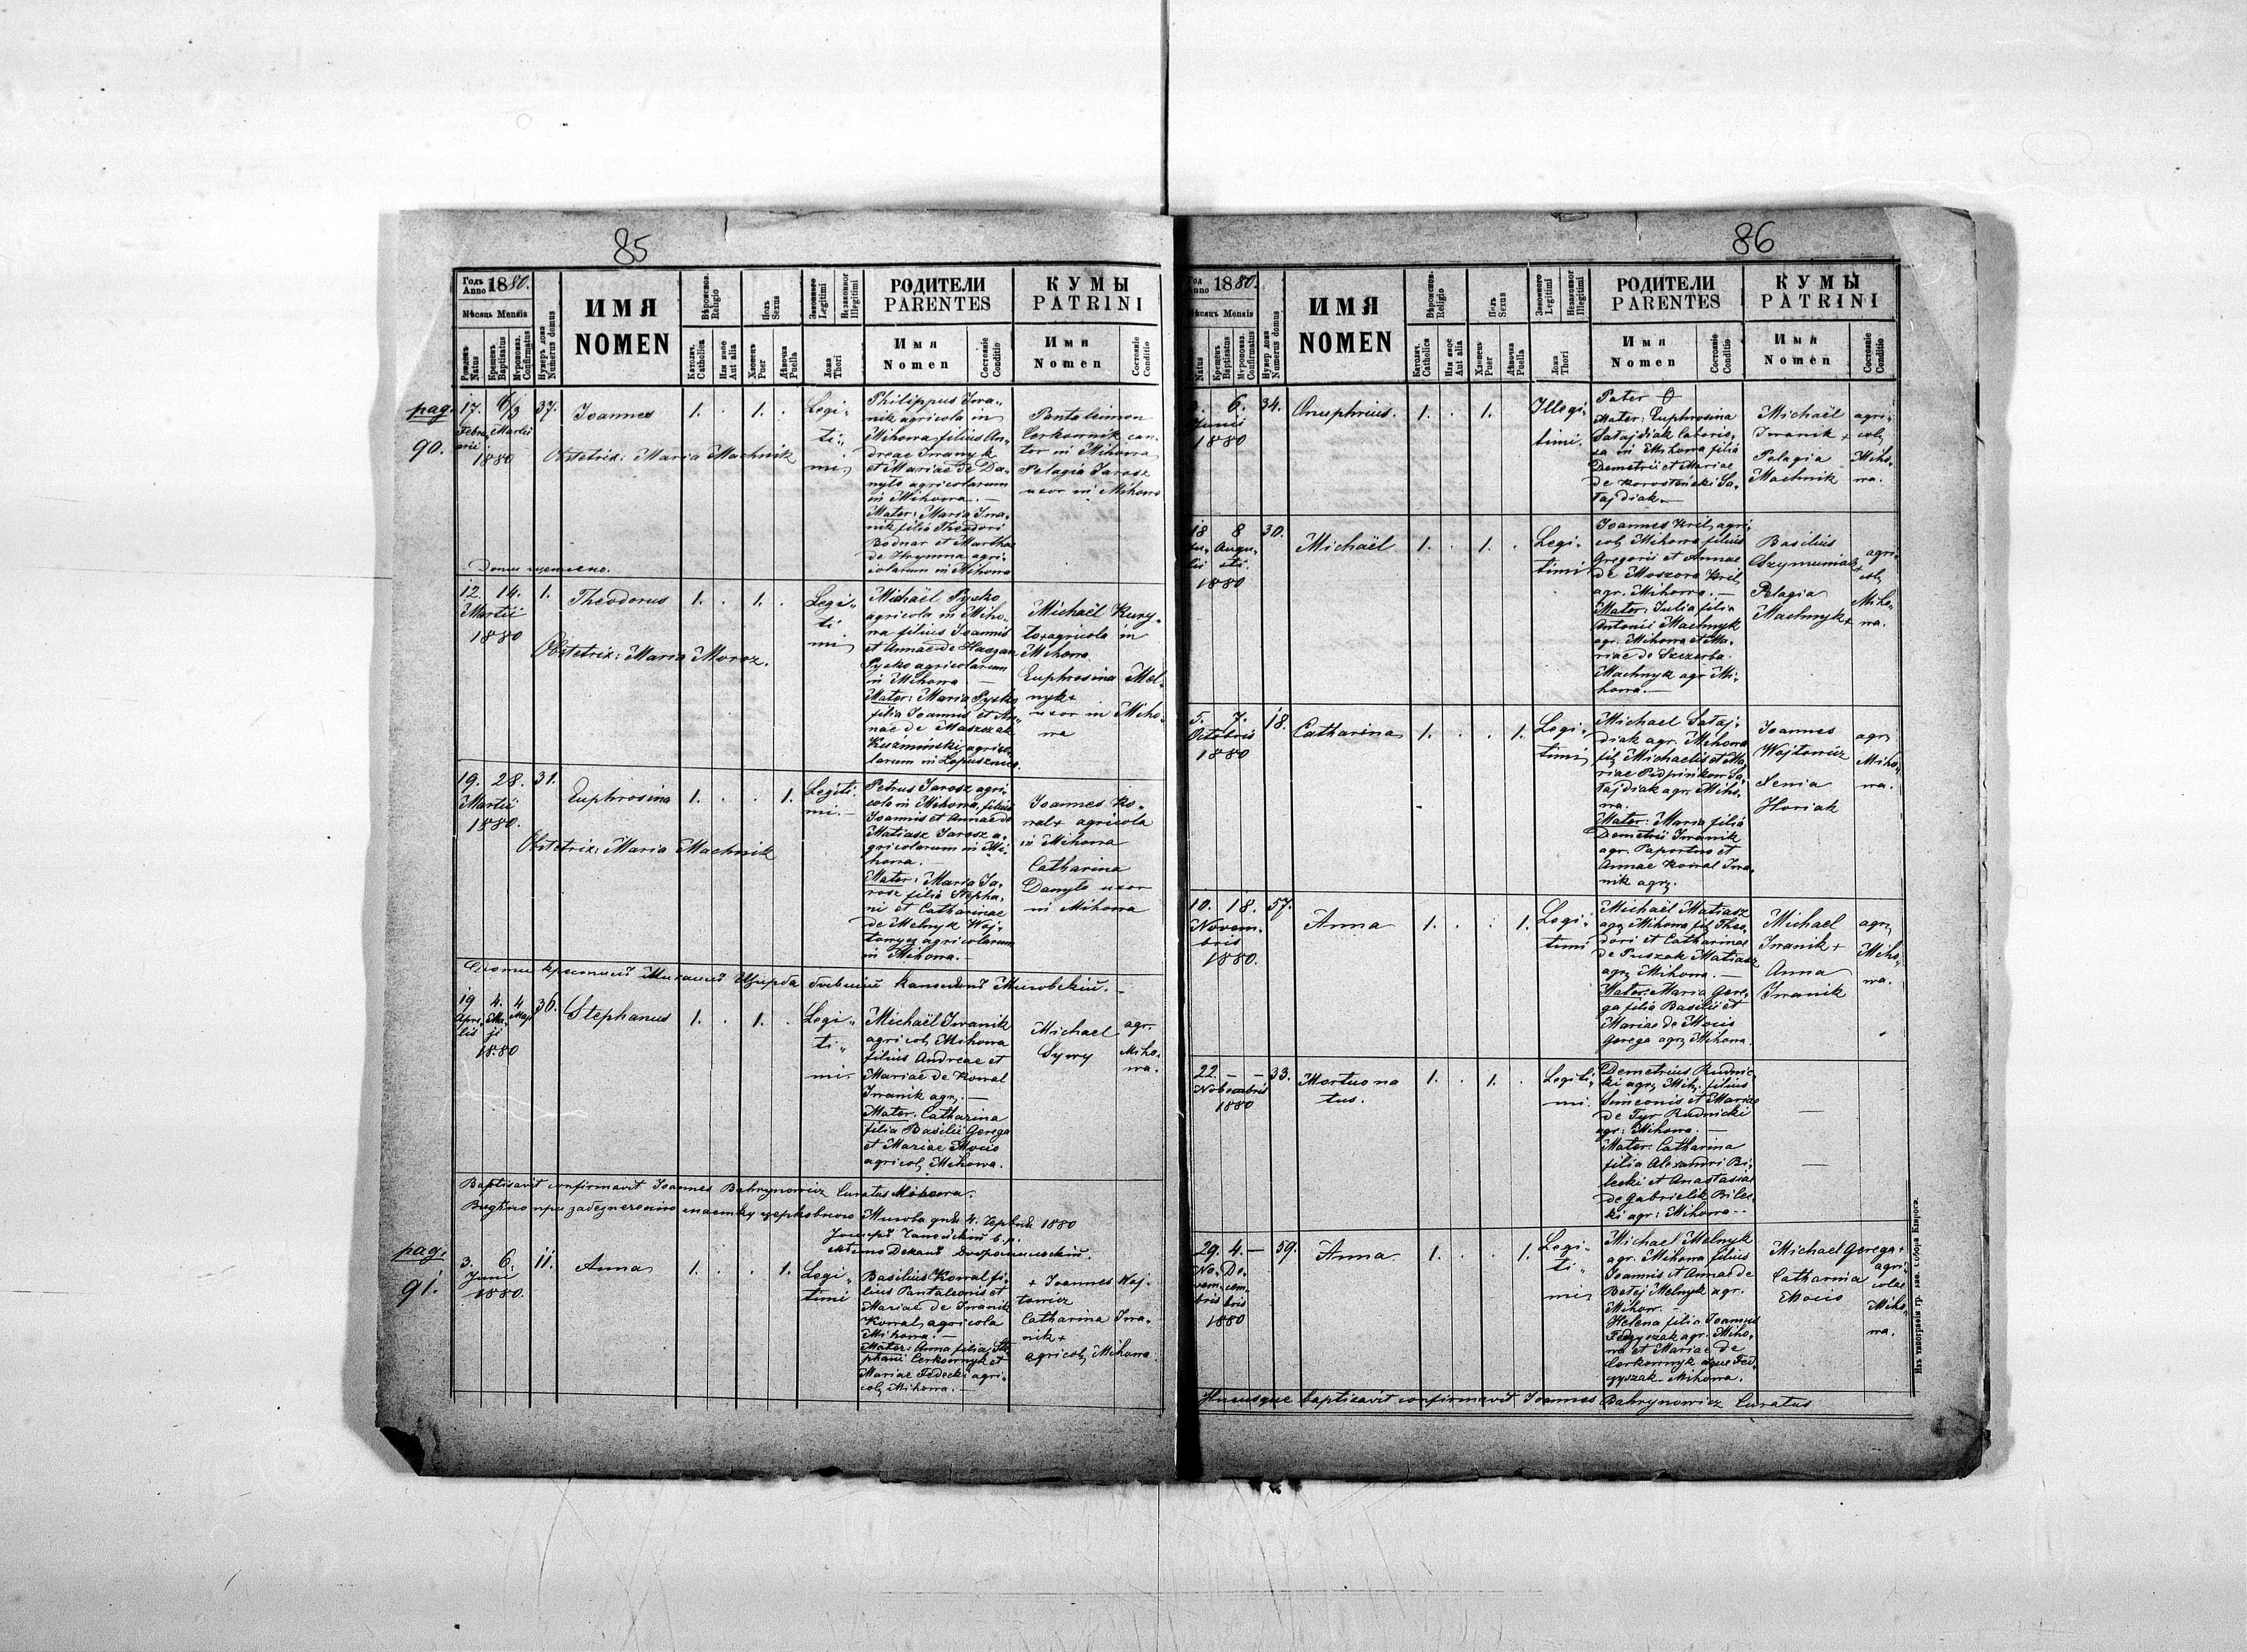 85
Годъ Anno 1880.
Мѣсяцъ Mensis
Рожденъ Natus
Крещенъ Baptisatus
Мѵропомаз. Confirmatus
Нумеръ дома Numerus domus
ИМЯ
NOMEN
Вѣроиспов. Religio
Католич. Catholica
Или иное Aut alia
Полъ Sexus
Хлопецъ Puer
Дѣвочка Puella
Законного Legitimi
Незаконног Illegitimi
Ложа Thori
РОДИТЕЛИ
PARENTES
Имя
Nomen
Состояніе Conditio
КУМЫ
PATRINI
Имя
Nomen
Состояніе Conditio
pag.
90.
17. 6/3 37.
Febru Martii
arii
1880
Joannes
1. . 1. .
Legi-
ti-
mi
Obstetrix: Maria Machnik
Philippus Iwa-
nik agricola in
Mihowa filius An-
dreae Iwanyk
et Mariae de Da-
nyło agricolarum
in Mihowa. —
Mater: Maria Iwa-
nik filia Theodori
Bodnar et Marthae
de Hrynna agri-
colarum in Mihowa
Pantaleimon
Cerkownik can-
tor in Mihowa
Pelagia Jarosz
uxor in Mihowa
12. 14. 1.
Martii
1880
Theodorus
1. . 1. .
Legi-
ti-
mi
Obstetrix: Maria Moroz.
Michaël Pysko
agricola in Miho-
wa filius Joannis
et Annae de
Pysko agricolarum
in Mihowa —
Mater: Maria Pysko
filia Joannis et An-
nae de Maszczak
Kuźmiński agrico-
larum in Łopusznica.
Michaël Kury-
agricola in
Mihowa
Euphrosina Mel-
nyk+
uxor in Miho-
wa
19. 28. 31.
Martii
1880.
Euphrosina
1. . . 1.
Legiti-
mi. —
Obstetrix: Maria Machnik
Petrus Jarosz agri
cola in Mihowa, filius
Joannis et Annae de
Matiasz Jarosz a-
gricolarum in Mi-
howa. —
Mater: Maria Ja-
rosz filia Stepha-
ni et Catharinae
de Melnyk Woj-
towycz agricolarum
in Mihowa. —
Joannes Ko-
wal+ agricola
in Mihowa
Catharina
Danyło uxor
in Mihowa
19 4. 4 36.
Apri- Ma- Maji
lis ji
1880
Stephanus
1. . 1. .
Legi-
ti-
mi.
Michaël Iwanik
agricol, Mihowa
filius Andreae et
Mariae de Kowal
Iwanik agr. —
Mater: Catharina
filia Basilii Gerega
et Mariae Mocio
agricol, Mihowa.
Michael
Sywy
agr.
Miho-
wa.
Baptisavit confirmavit Joannes Bahrynowicz Curatus Mihowa.
1880
pag.
91.
3. 6. 11.
Junii
1880.
Anna
1. . . 1.
Legi-
timi
Basilius Kowal fi-
lius Pantaleonis et
Mariae de Iwanik
Kowal, agricola
Mihowa. —
Mater: Anna filia Ste
phani Cerkownyk et
Mariae Fedecki agri-
col, Mihowa. —
+ Joannes Woj-
towicz
Catharina Iwa-
nik+
agricol, Mihowa
86
Годъ Anno 1880.
Мѣсяцъ Mensis
Natus
Крещенъ Baptisatus
Мѵропомаз. Confirmatus
Нумер дома Numerus domus
ИМЯ
NOMEN
Вѣроиспов. Religio
Католич. Catholica
Или иное Aut alia
Полъ Sexus
Хлопецъ Puer
Дѣвочка Puella
Законного Legitimi
Незаконног Illegitimi
Ложа Thori
РОДИТЕЛИ
PARENTES
Имя
Nomen
Состояніе Conditio
КУМЫ
PATRINI
Имя
Nomen
Состояніе Conditio
6. 34.
Junii
1880
Onuphrius.
1. . 1.
Illegi-
timi.
Pater O
Mater: Euphrosina
Satajdiak laborio-
sa in Mihowa filia
Demetrii et Mariae
de Korosteński Sa-
tajdiak. —
Michaël
Iwanik +
Pelagia
Machnik
agri-
col,
Miho-
wa.
18 8 30.
Ju- Augu-
lii sti
1880
Michaël
1. . 1. .
Legi-
timi
Joannes Kril, agri-
col, Mihowa filius
Gregorii et Annae
de Moszora Kril,
agr. Mihowa. —
Mater: Julia filia
Antonii Machnyk
agr. Mihowa et Ma-
riae de Szczerba
Machnyk agr Mi-
howa. —
Basilius
Szymuniak
+
Pelagia
Machnyk+
agri-
col,
Miho-
wa.
5. 7. 18.
Octobris
1880
Catharina
1. . . 1.
Legi-
timi
Michael Sataj-
diak agr. Mihowa
fil, Michaelis et Ma-
riae Pidpirikow Sa-
tajdiak agr, Miho-
wa.
Mater: Maria filia
Demetrii Iwanik
agr. Paportno et
Annae Kowal Iwa-
nik agr.
Joannes
Wojtowicz
Xenia
Horiak
agr,
Miho-
wa.
10. 18. 57.
Novem-
bris
1880.
Anna
1. . . 1.
Legi-
timi
Michaël Matiasz
agr, Mihowa fil, Theo-
dori et Catharinae
de Puszak Matiasz
agr, Mihowa. —
Mater: Maria Gere-
ga filia Basilii et
Mariae de Mocio
Gerega agr, Mihowa.
Michael
Iwanik +
Anna
Iwanik
agr,
Miho-
wa.
22. — — 33.
Novembris
1880
Mortuona
tus.
1. . 1. .
Legiti-
mi.
Demetrius Rudnic-
ki agr, Mih, filius
Simeonis et Mariae
de Tyr Rudnicki
agr: Mihowa. —
Mater: Catharina
filia Alexandri Bi-
lecki et Anastasiae
de Gabrielik Bilec-
ki agr: Mihowa. —
—
—
29. 4. — 59.
No- De-
vem- cem-
bris bris
1880
Anna
1. . . 1.
Legi-
ti-
mi,
Michael Melnyk
agr. Mihowa filius
Joannis et Annae de
Betej Melnyk agr.
Mihow. —
Helena filia Joannis
Fedyszak agr. Miho-
wa et Mariae de
Cerkownyk
Mihowa.
Michael Gerega +
Catharina
Mocio
agri-
colae
Miho-
wa.
Hucusque baptisavit confirmavit Joannes Bahrynowicz Curatus
Изъ типографіи гр. зав. Собора Клироса.